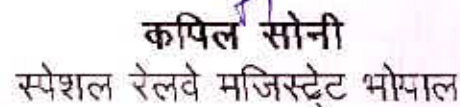 कपिल सोनी
स्पेशल रेलवे मजिस्ट्रेट भोपाल